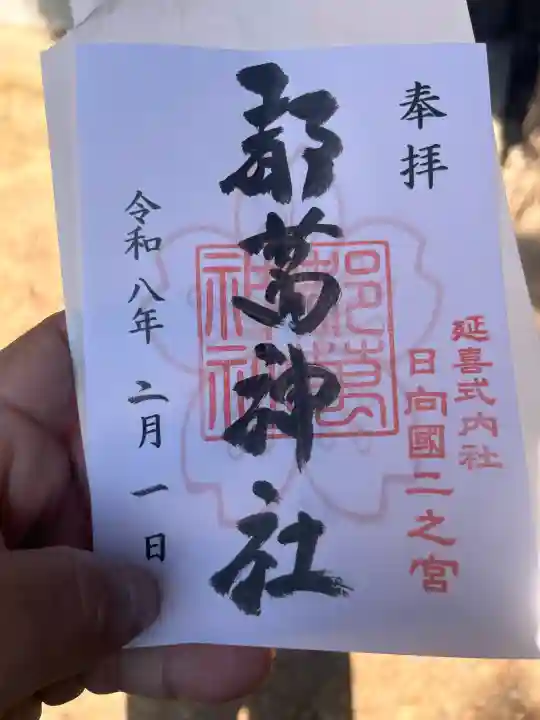 奉拝
延喜式内社
日向國二之宮
都萬神社
都萬
神社
令和八年 二月 一日